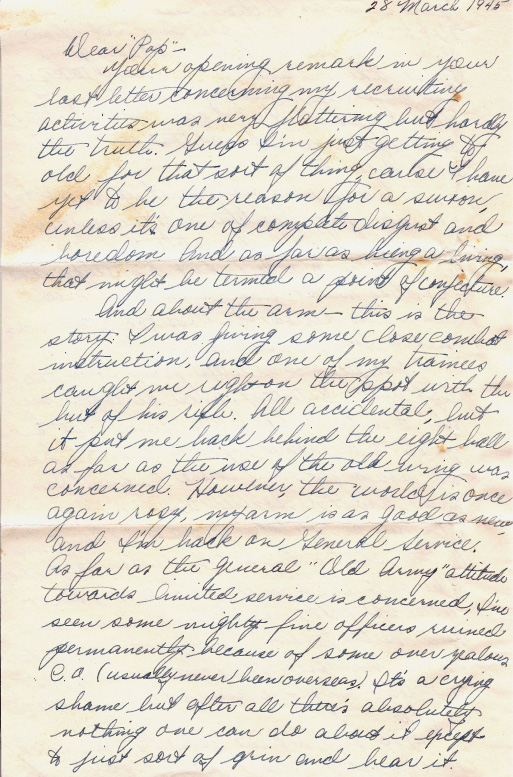 28 March 1945
Dear "Pop"-
Your opening remark in your
last letter concerning my recruiting
activities was very flattering but hardly
the truth. Guess I'm just getting to
old for that sort of thing, cause I have
yet to be the reason for a swoon,
unless it's one of complete disgust and
boredom. And as far as being a living,
that might be termed a point of conjecture.
And about the arm - this is the
story. I was giving some close combat
instruction, and one of my trainees
caught me right on the spot with the
but of his rifle. All accidental, but
it put me back behind the eight ball
as far as the use of the old wing was
concerned. However, the world is once
again rosy, my arm is as good as new
and I'm back on General Service.
As far as the general "Old Army" attitude
towards limited service is concerned, I've
seen some mighty fine officers ruined
permanently because of some over zealous
C.O. (usually never been overseas). It's a crying
shame but after all there's absolutely
nothing one can do about it except
to just sort of grin and bear it.